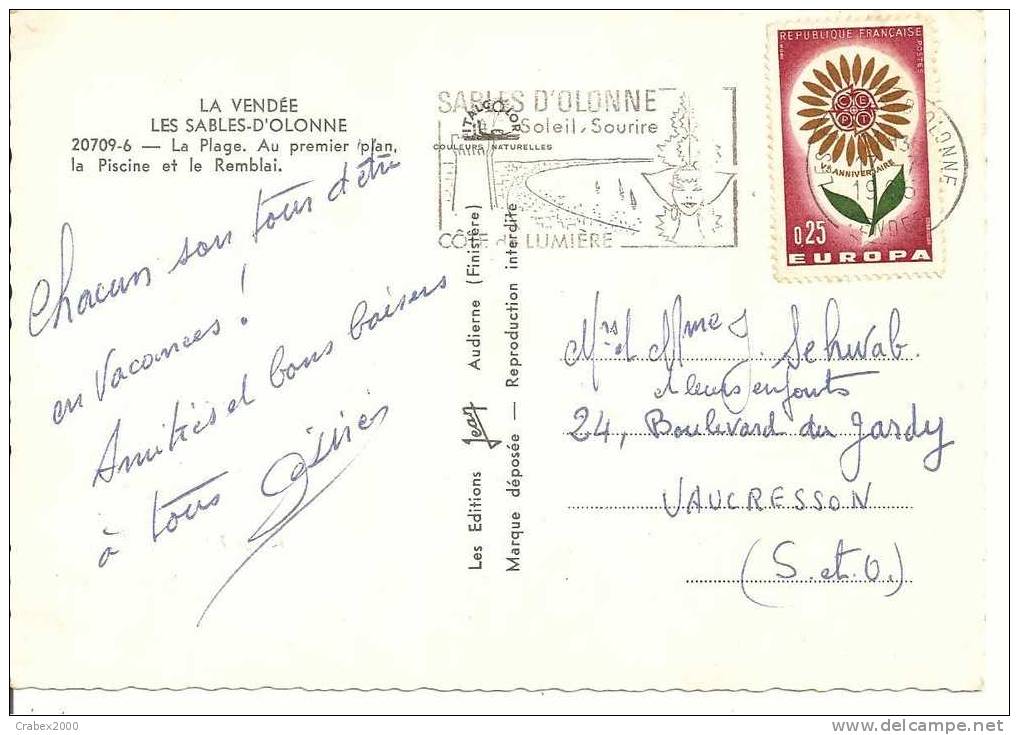 LA VENDÉE
LES SABLES-D'OLONNE
20709-6 — La Plage. Au premier plan,
la Piscine et le Remblai.
Chacun son tour d'être
en Vacances !
Amitiés et bons baisers
à tous
SABLES D'OLONNE
Soleil, Sourire
ITALCOLOR
COULEURS NATURELLES
CÔTE DE LUMIÈRE
REPUBLIQUE FRANÇAISE
POSTES
C E P T
Ve ANNIVERSAIRE
0,25
EUROPA
OLONNE
Les Editions Jean Audierne (Finistère)
Marque déposée — Reproduction interdite
Mr et Mme J. Schwab.
et leurs enfants
24, Boulevard du Jardy
VAUCRESSON
(S. et O.)
Crabex2000
www.delcampe.net